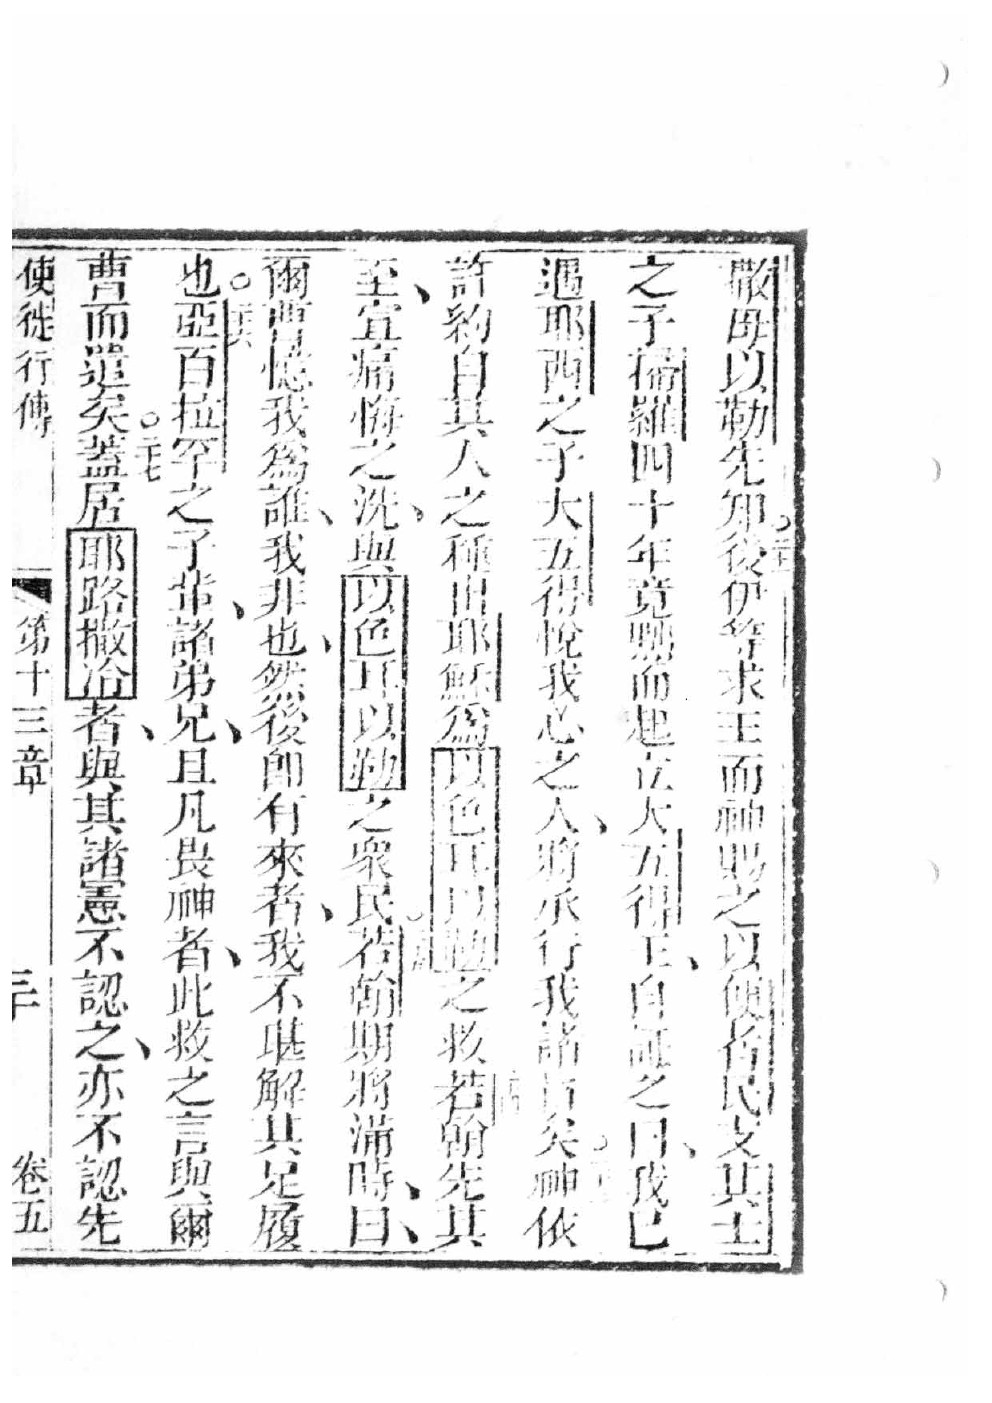 撒母以勒先知後伊等求王而神賜之以便者民支其士
之子掃羅四十年竟黜而起立大五得王自証之曰我已
遇耶西之子大五得悅我心之人將承行我諸旨矣神依
許約自其人之種出耶穌為以色耳以勒之救若翰先其
至宣痛悔之洗與以色耳以勒之眾民若翰期將滿時曰
爾曹憶我為誰我非也然後即有來者我不堪解其足履
二十六
也亞百拉罕之子輩諸弟兄且凡畏神者此救之言與爾
二十七
曹而遣矣蓋居耶路撒冷者與其諸憲不認之亦不認先
使徒行傳 第十三章 二十 卷五